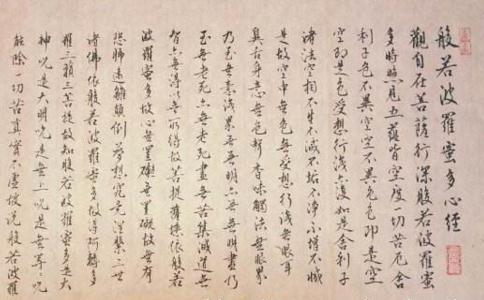 般若波羅蜜多心經
觀自在菩薩行深般若波羅蜜
多時照見五蘊皆空度一切苦厄舍
利子色不異空空不異色色即是空
空即是色受想行識亦復如是舍利子
諸法空相不生不滅不垢不淨不增不減
是故空中無色無受想行識無眼耳
鼻舌身意無色聲香味觸法無眼界
乃至無意識界無無明亦無無明盡乃
至無老死亦無老死盡無苦集滅道無
智亦無得以無所得故菩提薩埵依般若
波羅蜜多故心無罣礙無罣礙故無有
恐怖遠離顛倒夢想究竟涅槃三世
諸佛依般若波羅蜜多故得阿耨多
羅三藐三菩提故知般若波羅蜜多是大
神咒是大明咒是無上咒是無等等咒
能除一切苦真實不虛故說般若波羅